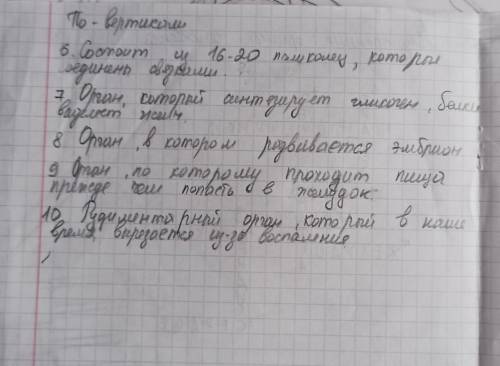 По-вертикали
6. Состоит из 16-20 полуколец, которые
соединены связками.
7. Орган, который синтезирует гликоген, белки
выделяет желч.
8 Орган, в котором развивается эмбрион
9 Орган, по которому проходит пища
прежде чем попасть в желудок.
10. Рудиментарный орган, который в наше
время вырезается из-за воспаления